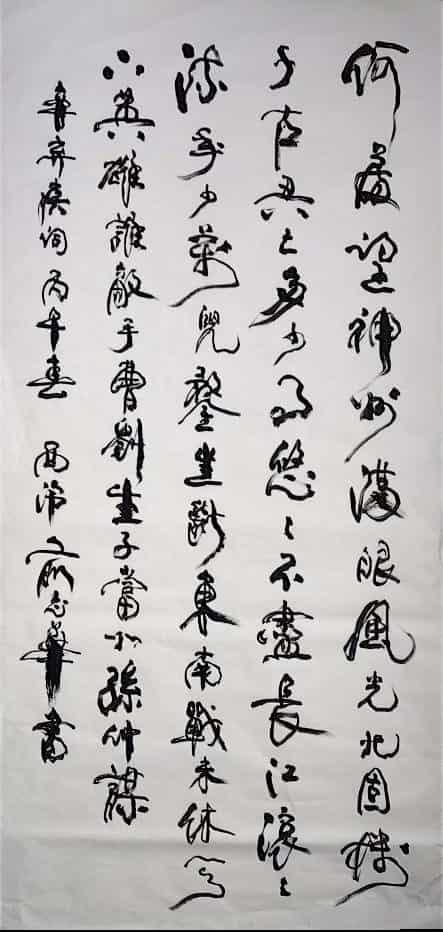 何處望神州滿眼風光北固樓
千古興亡多少事悠〻不盡長江滾〻
流年少萬兜鍪坐斷東南戰未休天
下英雄誰敵手曹劉生子當如孫仲謀
辛棄疾詞 丙午春 書